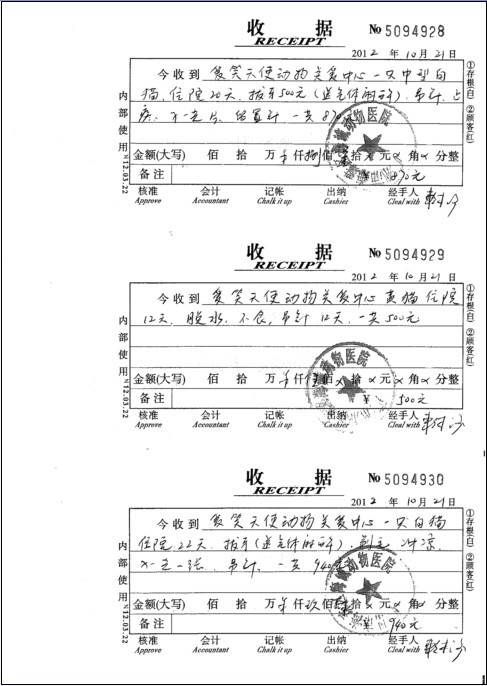 收 据
RECEIPT
No 5094928
2012 年 10 月 21 日
今 收 到 爱笑天使动物关爱中心一只中型白
猫,住院20天,拔牙500元(送气体麻醉),吊针,
一共870
金额(大写) 佰 拾 万 仟 捌 佰 拾 元 角 分整
备 注 ¥ 870元
核准 会计 记帐 出纳 经手人
Approve Accountant Chalk it up Cashier Cleal with
内部使用
N12.03.22
①存根(白) ②顾客(红)
动物医院
收 据
RECEIPT
No 5094929
2012 年 10 月 21 日
今 收 到 爱笑天使动物关爱中心 黄猫 住院
12天,脱水,不食,吊针12天,一共500元
金额(大写) 佰 拾 万 仟 伍 佰 拾 元 角 分整
备 注 ¥ 500元
核准 会计 记帐 出纳 经手人
Approve Accountant Chalk it up Cashier Cleal with
内部使用
N12.03.22
①存根(白) ②顾客(红)
动物医院
收 据
RECEIPT
No 5094930
2012 年 10 月 21 日
今 收 到 爱笑天使动物关爱中心一只白猫
住院22天,拔牙(送气体麻醉),剃毛,冲凉,
X-光一张,吊针,一共940
金额(大写) 佰 拾 万 仟 玖 佰 拾 元 角 分整
备 注 ¥ 940元
核准 会计 记帐 出纳 经手人
Approve Accountant Chalk it up Cashier Cleal with
内部使用
N12.03.22
①存根(白) ②顾客(红)
动物医院